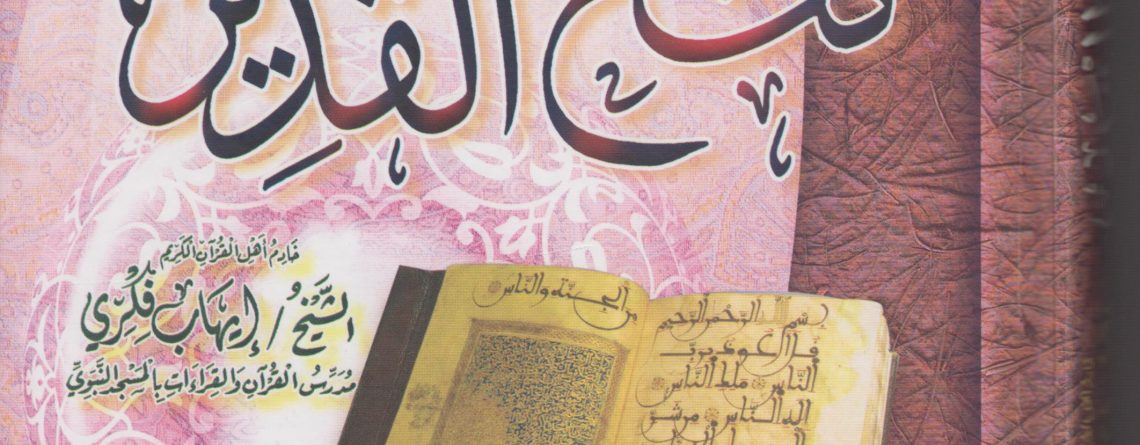 فتح القدير
خَادِمُ أَهْلِ الْقُرْآنِ الْكَرِيمِ
الشَّيْخُ / إِيهَاب فِكْرِي
مُدَرِّسُ الْقُرْآنِ وَالْقِرَاءَاتِ بِالْمَسْجِدِ النَّبَوِيِّ
من الجنة والناس
بسم الله الرحمن الرحيم
قل أعوذ برب
الناس ملك الناس
اله الناس من شر